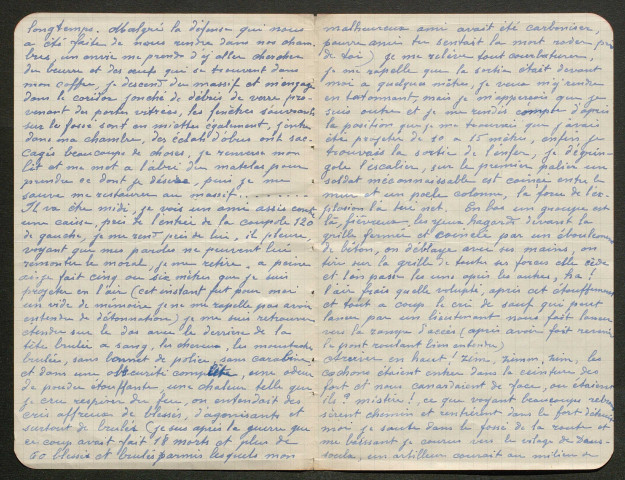 longtemps. Malgré la défense qui nous
a été faite de nous rendre dans nos cham
bres, un envie me prend d'y aller chercher
du beurre et des œufs qui se trouvent dans
mon coffre, je descend du massif et m'engage
dans le corridor jonché de débris de verre pro-
venant des portes vitrées, les fenêtres s'ouvrants
sur le fossé sont en miettes également, j'entre
dans ma chambre, des éclats d'obus ont sac-
cagés beaucoup de choses, je renverse mon
lit et me met à l'abri du matelas pour
prendre ce dont je désire, puis je me
sauve me restaurer au massif
Il va être midi, je vois un ami assis contre
une caisse, près de l'entrée de la coupole 120
de gauche, je me rend près de lui, il pleure,
voyant que mes paroles ne peuvent lui
remonter le moral, je me retire, a peine
ai-je fait cinq ou six mètres que je suis
projeter en l'air (cet instant fut pour moi
un vide de mémoire je ne me rappelle pas avoir
entendu de détonnation) je me suis retrouver
étendu sur le dos avec le derrière de la
tête brulée a sang, les cheveux, les moustaches
brulées, sans bonnet de police, sans carabine
et dans une obscurité complète, une odeur
de poudre étouffante, une chaleur telle que
je cru respirer du feu, on entendait des
cris affreux de blessés, d'agonisants et
surtout de brulés (je sus après la guerre que
ce coup avait fait 18 morts et plus de
60 blessés et brulés parmis lesquels mon
malheureux ami avait été carboniser,
pauvre ami tu sentait la mort roder près
de toi) je me relève tout courbaturer,
je me rapelle que la sortie était devant
moi a quelques mètre, je veux m'y rendre
en tatonnant, mais je m'apperçois que je
suis autre et je me rendis compte d'après
la position que je me trouvai que j'avais
été projeter de 10 a 15 mètres, enfin je
trouvais la sortie de l'enfer, je dégrin-
gole l'escalier, sur le premier palier un
soldat méconnaissable est coincer entre le
mur et un poele colonne, la force de l'ex-
plosion la tué net. En bas un groupe est
là fiévreux, les yeux hagards devant la
grille fermée et coincée par un éboulement
de béton, on déblaye avec ses mains, on
tire sur la grille de toute ses forces elle cède
et l'on passe les uns après les autres, ha!
l'air frais quelle volupté, après cet étouffement
et tout a coup le cri de sauf qui peut
lancer par un lieutenant nous fait lancer
vers la rampe d'accès (après avoir fait remis
le pont roulant bien entendu)
Arriver en haut! zim, zimm, zim, les
cochons étaient entrer dans la ceinture du
fort et nous canardaient de face, ou étaient
ils? mistère!, ce que voyant beaucoups rebrou
sèrent chemin et rentrèrent dans le fort d'étruis
moi je saute dans le fossé de la route et
me baissant je courus vers le vilage de
soula, un artilleur courait au milieu de